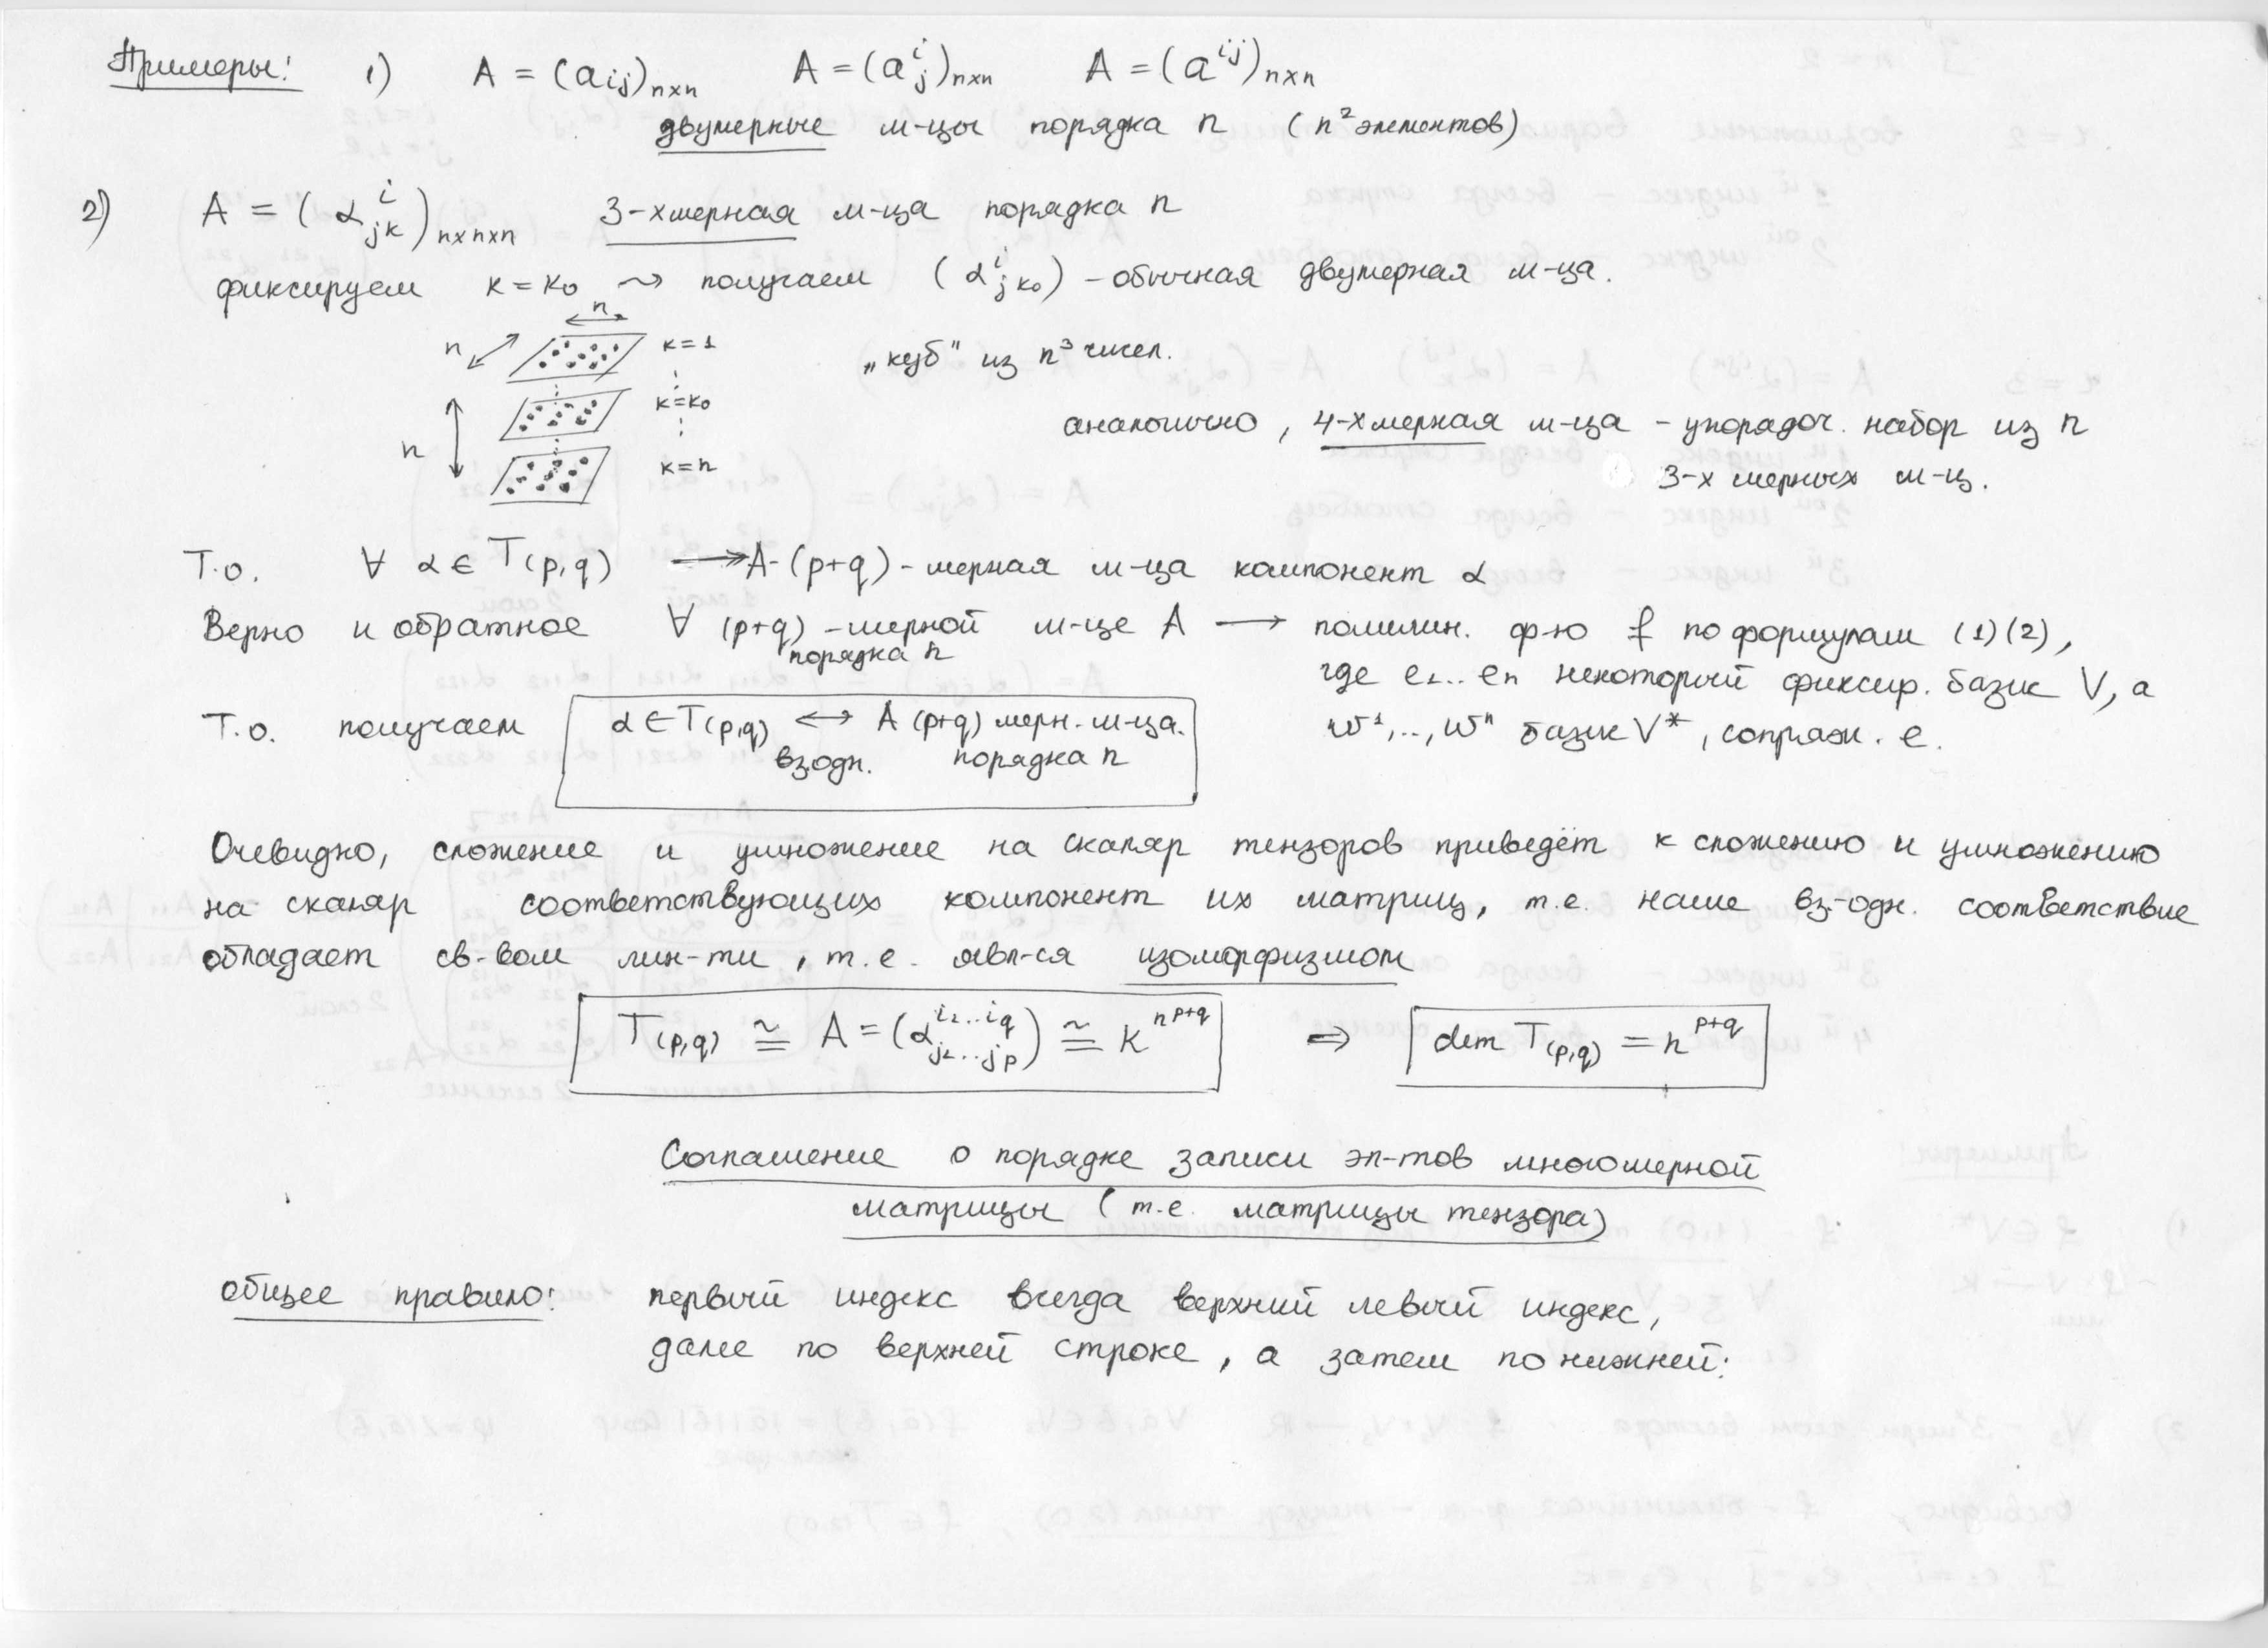 Примеры: 1) A = (aij)n×n A = (a^i_j)n×n A = (a^ij)n×n
двумерные м-цы порядка n (n² элементов)
2) A = (α^i_jk)n×n×n 3-хмерная м-ца порядка n
фиксируем k = k₀ ⤳ получаем (α^i_jk₀) – обычная двумерная м-ца.
n
n k=1
„куб" из n³ чисел.
k=k₀
аналогично, 4-хмерная м-ца – упорядоч. набор из n
n k=n
3-х мерных м-ц.
Т.о. ∀ α ∈ T(p,q) → A - (p+q) - мерная м-ца компонент α
Верно и обратное ∀ (p+q) - мерной м-це A → полилин. ф-ю f по формулам (1)(2),
порядка n
где e₁...en некоторый фиксир. базис V, а
Т.о. получаем α ∈ T(p,q) ↔ A (p+q) мерн. м-ца.
w¹,..,wⁿ базис V*, сопряж. e.
вз.одн. порядка n
Очевидно, сложение и умножение на скаляр тензоров приведёт к сложению и умножению
на скаляр соответствующих компонент их матриц, т.е. наше вз-одн. соответствие
обладает св-вом лин-ти, т.е. явл-ся изоморфизмом
T(p,q) ≅ A = (α^i₁...iq_j₁...jp) ≅ K^n^p+q ⇒ dim T(p,q) = n^p+q
Соглашение о порядке записи эл-тов многомерной
матрицы (т.е. матрицы тензора)
общее правило: первый индекс всегда верхний левый индекс,
далее по верхней строке, а затем по нижней: